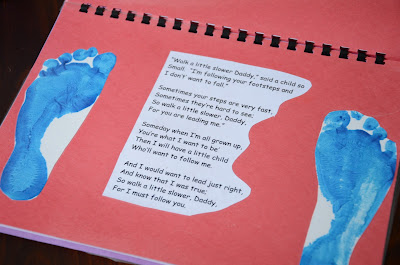 "Walk a little slower Daddy," said a child so
Small. "I'm following your footsteps and
I don't want to fall."
Sometimes your steps are very fast,
Sometimes they're hard to see;
So walk a little slower, Daddy,
For you are leading me."
Someday when I'm all grown up,
You're what I want to be;
Then I will have a little child
Who'll want to follow me.
And I would want to lead just right,
And know that I was true;
So walk a little slower, Daddy,
For I must follow you.